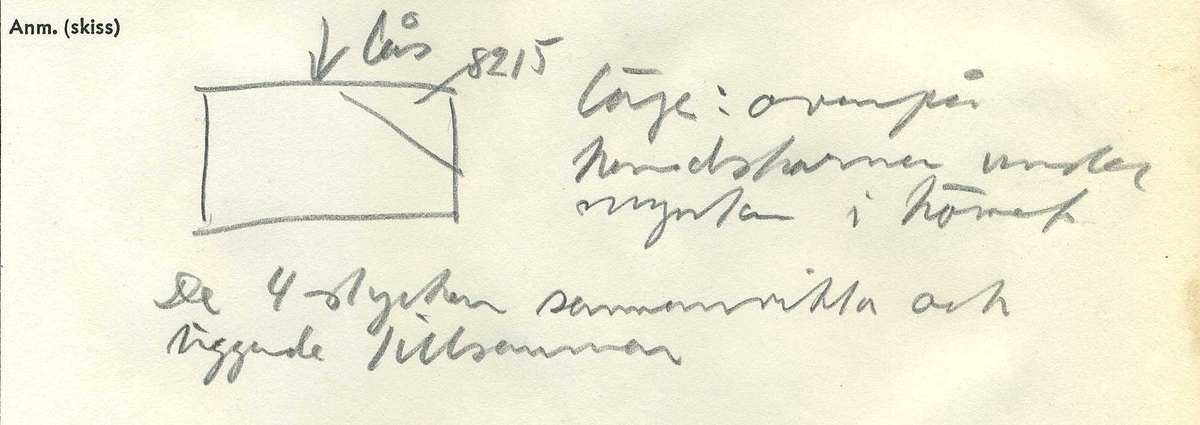 Anm. (skiss)
lås
8215
Läge: ovanpå
handskarna under
mynten i hörnet
De 4 stycken sammanvikta och
liggande tillsammans